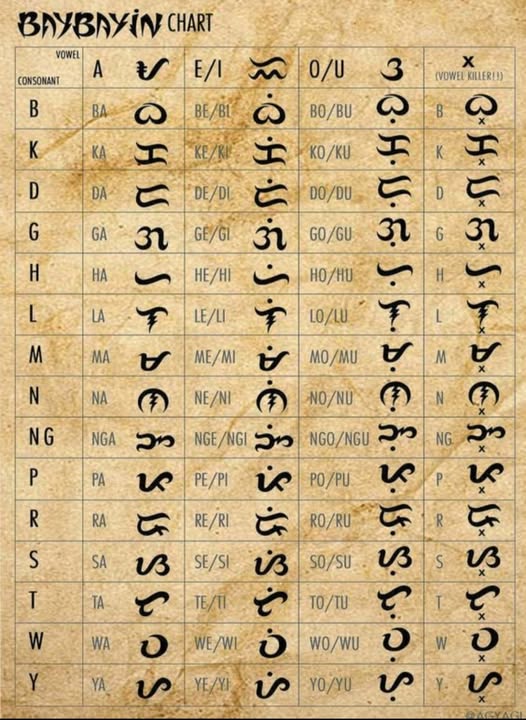 BAYBAYIN CHART
VOWEL
CONSONANT
A ᜀ E/I ᜁ O/U ᜂ x
(VOWEL KILLER!!)
B BA ᜊ BE/BI ᜊᜒ BO/BU ᜊᜓ B ᜊ᜔
K KA ᜃ KE/KI ᜃᜒ KO/KU ᜃᜓ K ᜃ᜔
D DA ᜇ DE/DI ᜇᜒ DO/DU ᜇᜓ D ᜇ᜔
G GA ᜄ GE/GI ᜄᜒ GO/GU ᜄᜓ G ᜄ᜔
H HA ᜑ HE/HI ᜑᜒ HO/HU ᜑᜓ H ᜑ᜔
L LA ᜎ LE/LI ᜎᜒ LO/LU ᜎᜓ L ᜎ᜔
M MA ᜋ ME/MI ᜋᜒ MO/MU ᜋᜓ M ᜋ᜔
N NA ᜈ NE/NI ᜈᜒ NO/NU ᜈᜓ N ᜈ᜔
NG NGA ᜅ NGE/NGI ᜅᜒ NGO/NGU ᜅᜓ NG ᜅ᜔
P PA ᜉ PE/PI ᜉᜒ PO/PU ᜉᜓ P ᜉ᜔
R RA ᜍ RE/RI ᜍᜒ RO/RU ᜍᜓ R ᜍ᜔
S SA ᜐ SE/SI ᜐᜒ SO/SU ᜐᜓ S ᜐ᜔
T TA ᜆ TE/TI ᜆᜒ TO/TU ᜆᜓ T ᜆ᜔
W WA ᜏ WE/WI ᜏᜒ WO/WU ᜏᜓ W ᜏ᜔
Y YA ᜌ YE/YI ᜌᜒ YO/YU ᜌᜓ Y ᜌ᜔